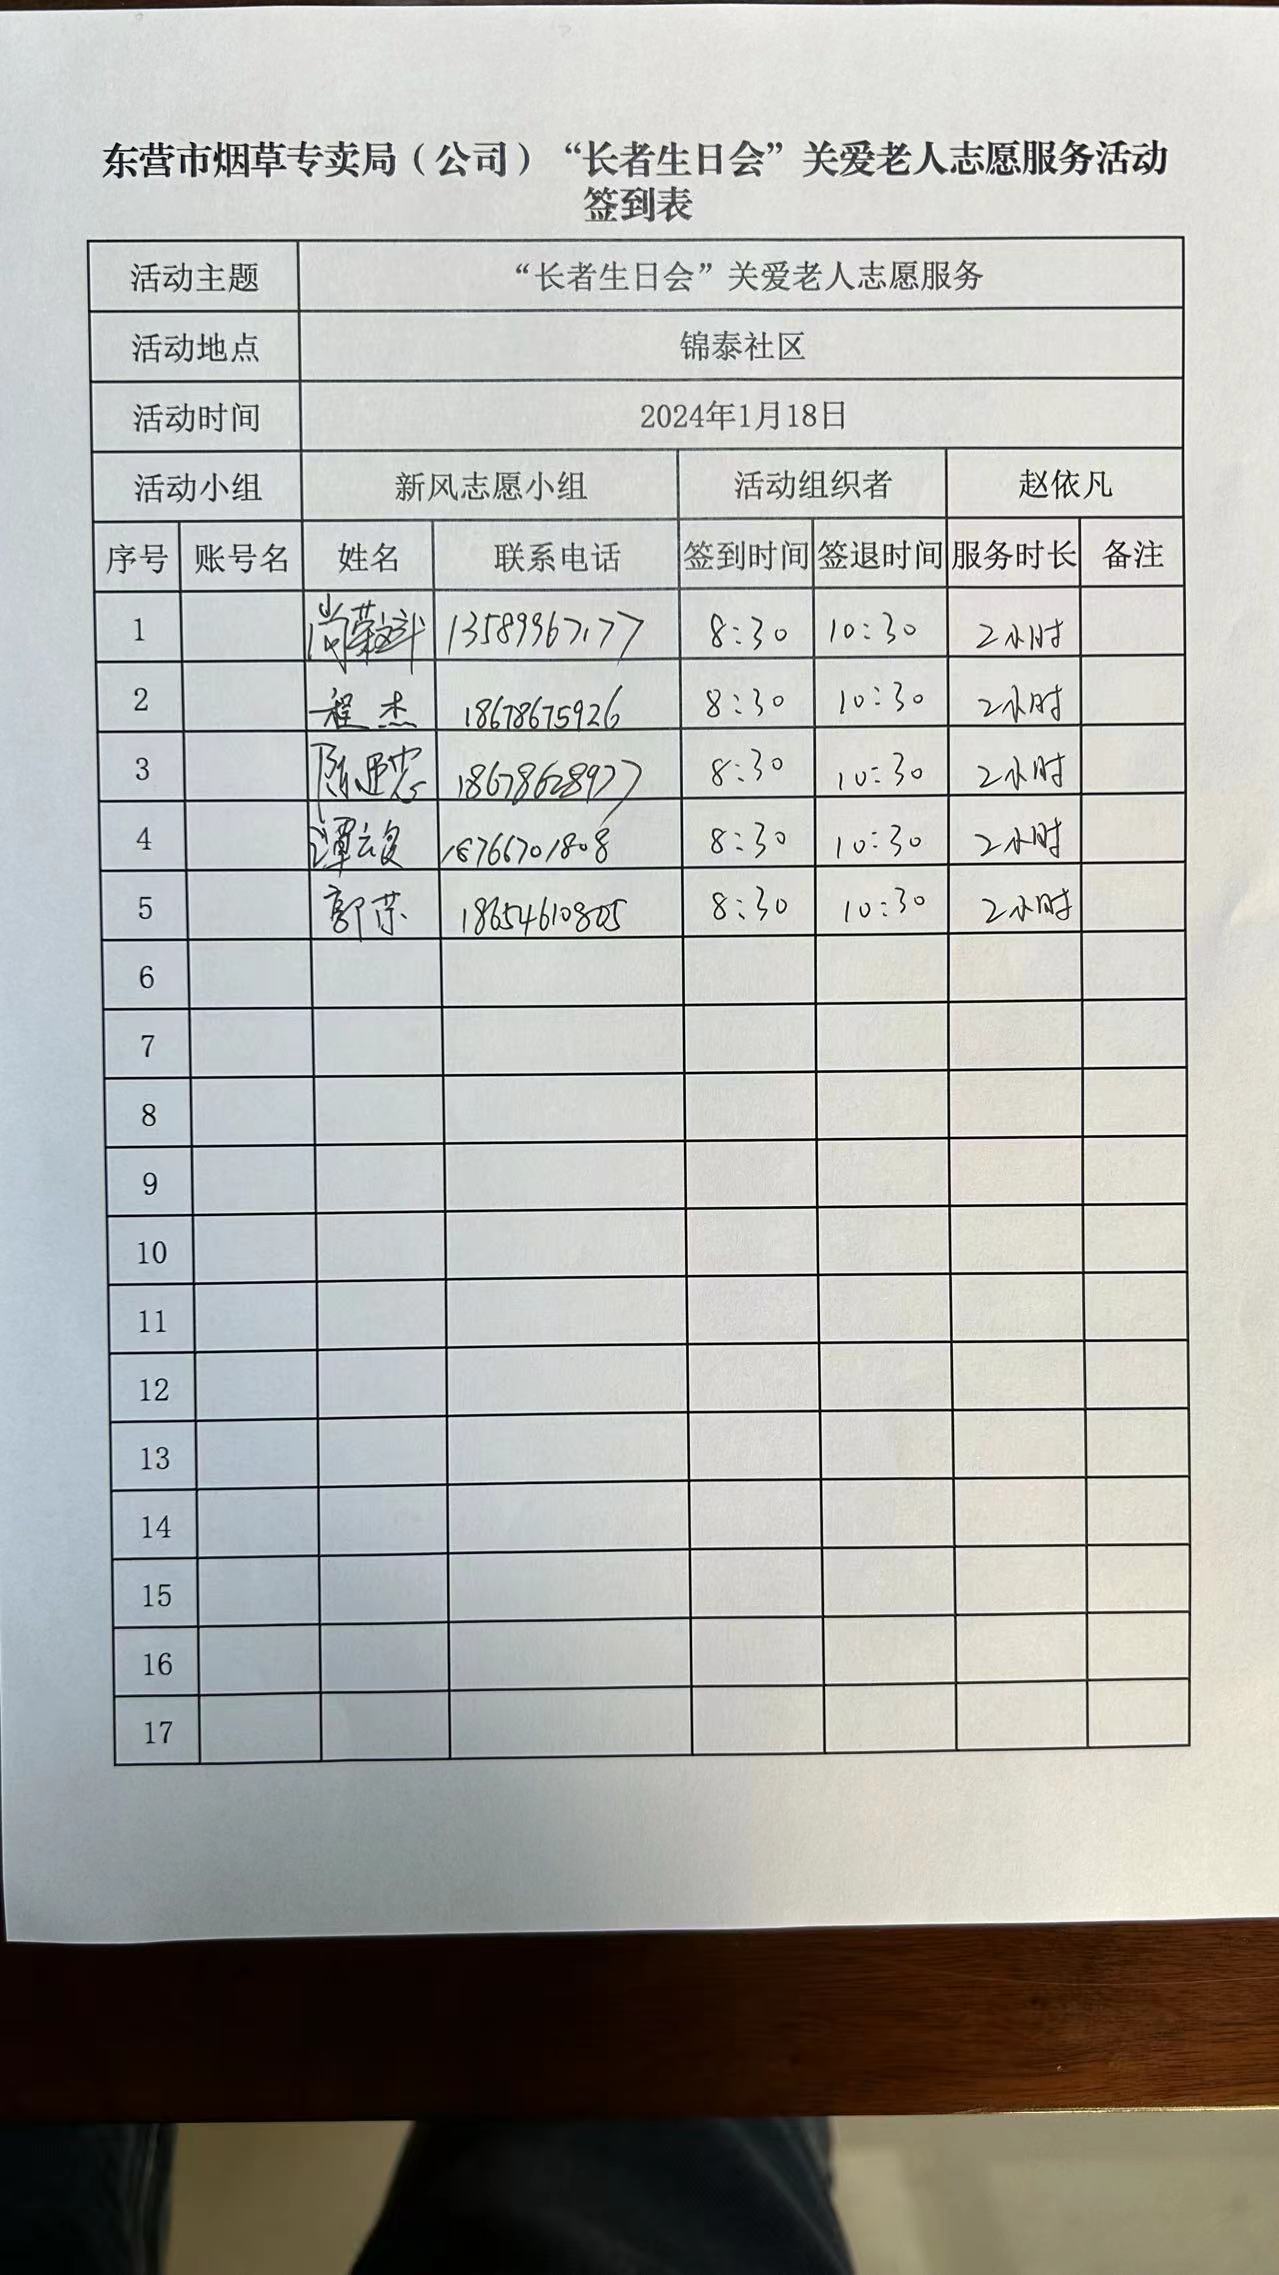 东营市烟草专卖局（公司）“长者生日会”关爱老人志愿服务活动
签到表
活动主题 “长者生日会”关爱老人志愿服务
活动地点 锦泰社区
活动时间 2024年1月18日
活动小组 新风志愿小组 活动组织者 赵依凡
序号 账号名 姓名 联系电话 签到时间 签退时间 服务时长 备注
1 8:30 10:30 2小时
2 程杰 18678675926 8:30 10:30 2小时
3 18678628977 8:30 10:30 2小时
4 18766701808 8:30 10:30 2小时
5 18654610805 8:30 10:30 2小时
6
7
8
9
10
11
12
13
14
15
16
17